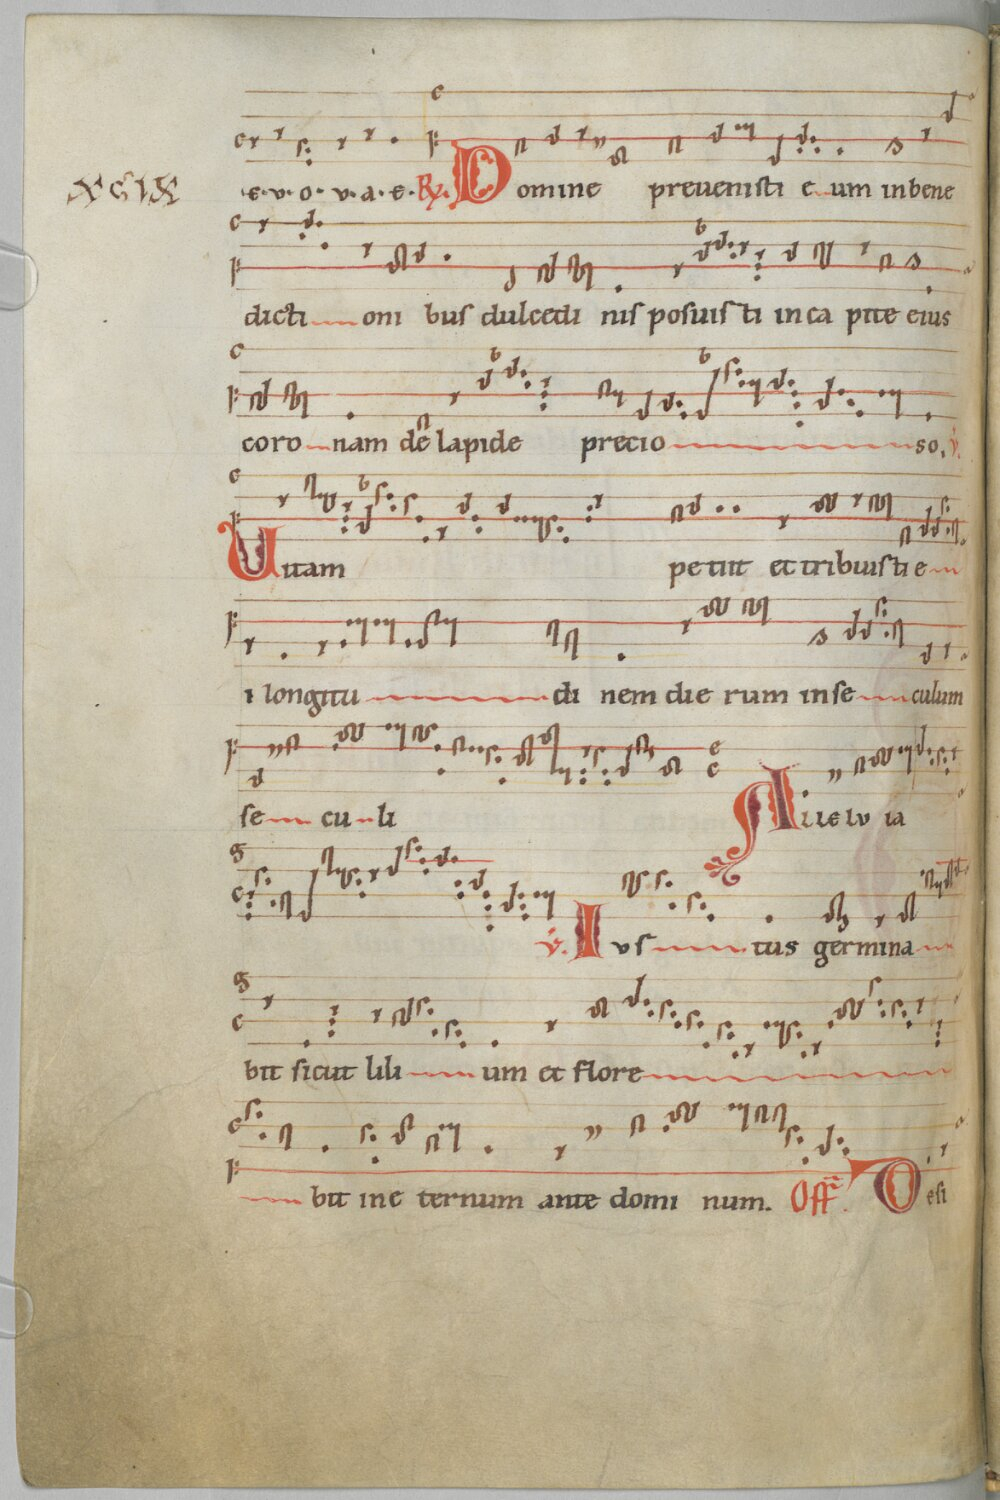 XCIX
e. v. o. v. a. e. R. Domine prevenisti e um in bene
dicti oni bus dulcedi nis posuisti in ca pite eius
coro nam de lapide precio so. v.
Uitam petiit et tribuisti e
i longitu di nem die rum in se culum
se cu li Alle lu ia
v. Ius tus germina
bit sicut lili um et flore
bit in e ternum ante domi num. Off. Desi